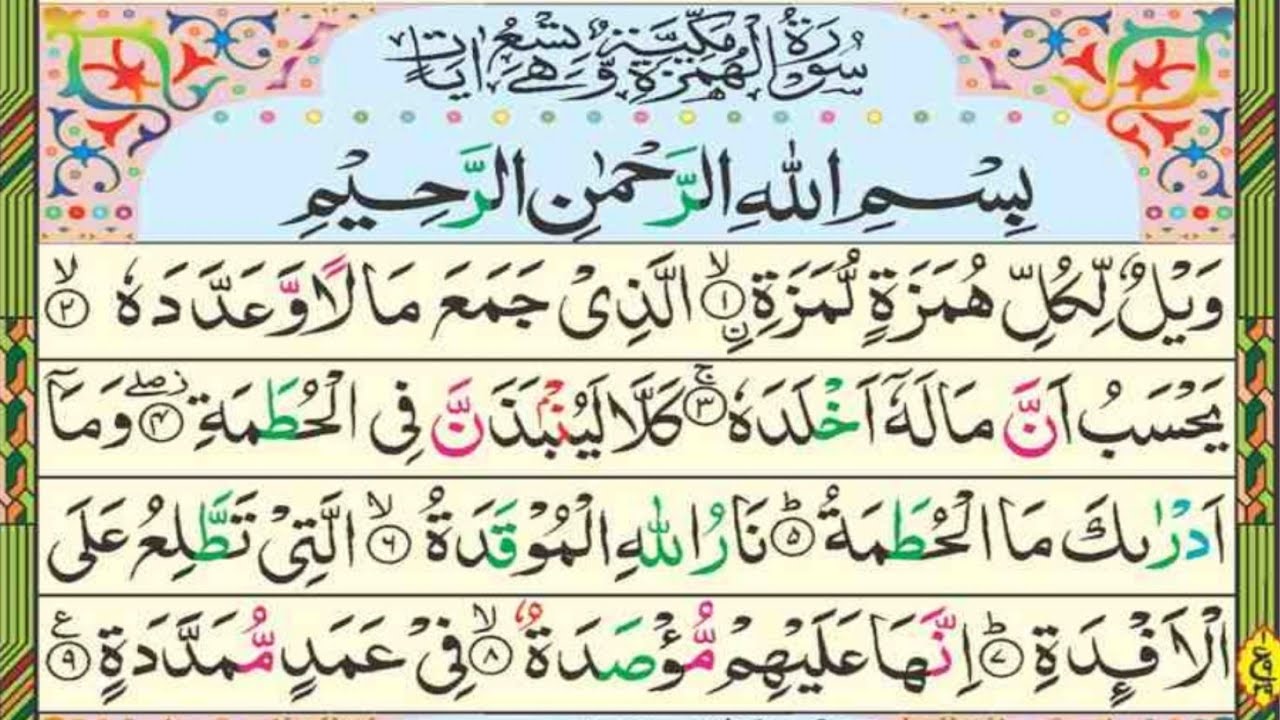 سُوْرَةُ الْهُمَزَةِ مَكِّيَّةٌ وَّهِيَ تِسْعُ اٰيَاتٍ
بِسْمِ اللّٰهِ الرَّحْمٰنِ الرَّحِيْمِ
وَيْلٌ لِّكُلِّ هُمَزَةٍ لُّمَزَةِ ۙ﴿۱﴾ اۨلَّذِىْ جَمَعَ مَالًا وَّعَدَّدَهٗ ۙ﴿۲﴾
يَحْسَبُ اَنَّ مَالَهٗۤ اَخْلَدَهٗ ۚ﴿۳﴾ كَلَّا لَيُنْۢبَذَنَّ فِى الْحُطَمَةِ ۖ﴿۴﴾ وَمَاۤ
اَدْرٰىكَ مَا الْحُطَمَةُ ؕ﴿۵﴾ نَارُ اللّٰهِ الْمُوْقَدَةُ ۙ﴿۶﴾ الَّتِىْ تَطَّلِعُ عَلَى
الْاَفْـِٕدَةِ ؕ﴿۷﴾ اِنَّهَا عَلَيْهِمْ مُّؤْصَدَةٌ ۙ﴿۸﴾ فِىْ عَمَدٍ مُّمَدَّدَةٍ ﴿۹﴾ ع